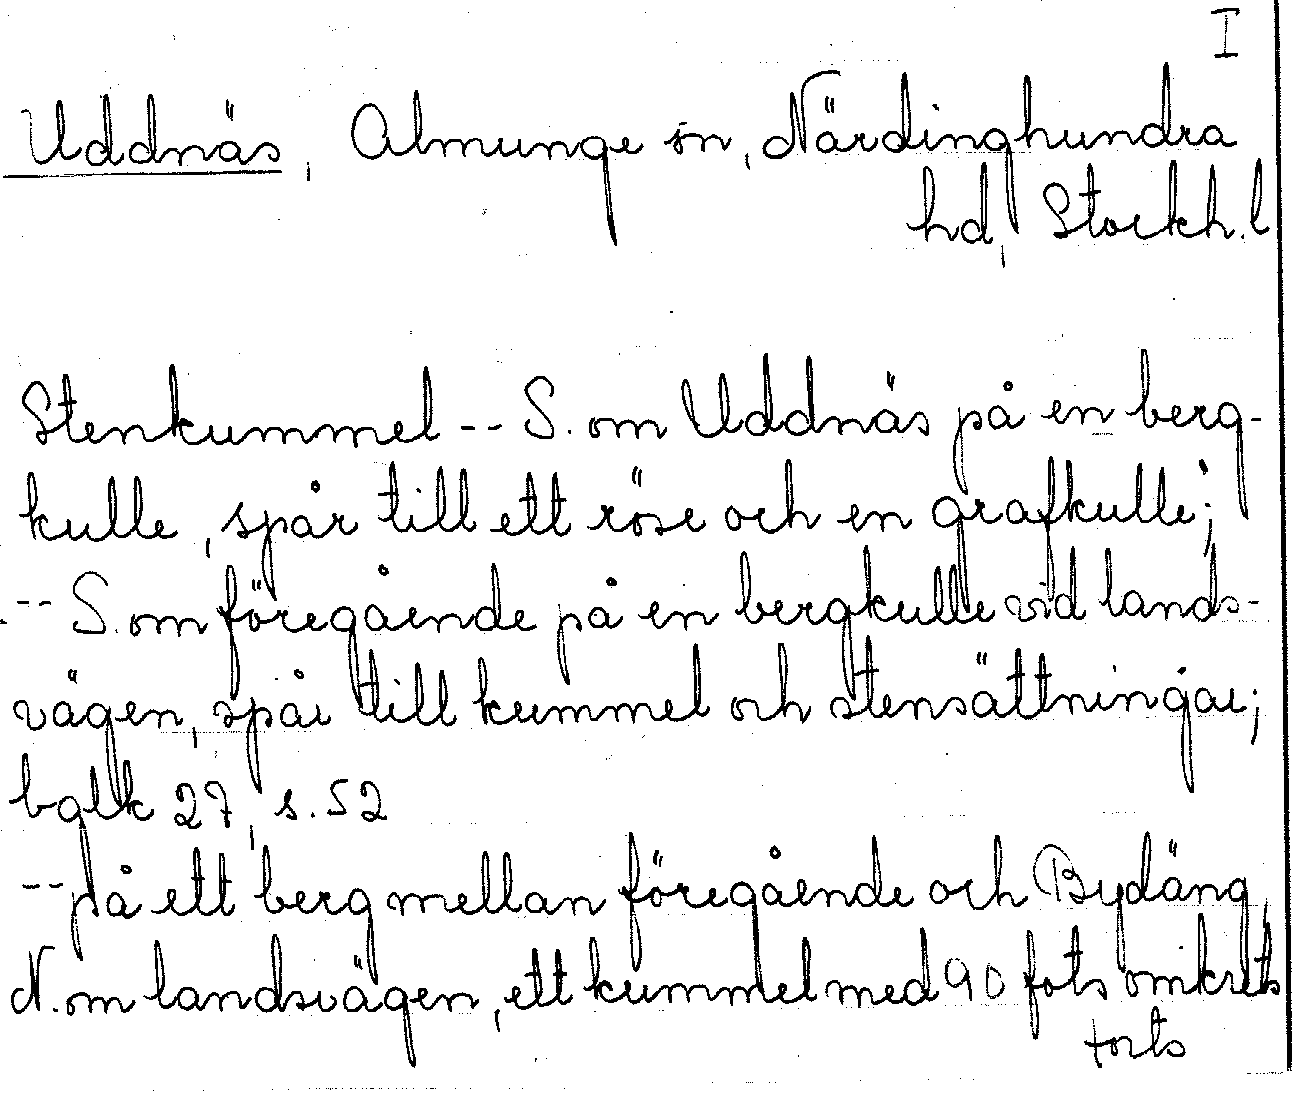 I
Uddnäs, Almunge sn, Närdinghundra
hd, Stockh.l
Stenkummel -- S. om Uddnäs på en berg-
kulle, spår till ett röse och en grafkulle;
-- S. om föregående på en bergkulle vid lands-
vägen, spår till kummel och stensättningar;
balk 27, s. 52
-- på ett berg mellan föregående och Bydäng,
N. om landsvägen, ett kummel med 90 fots omkrets
forts